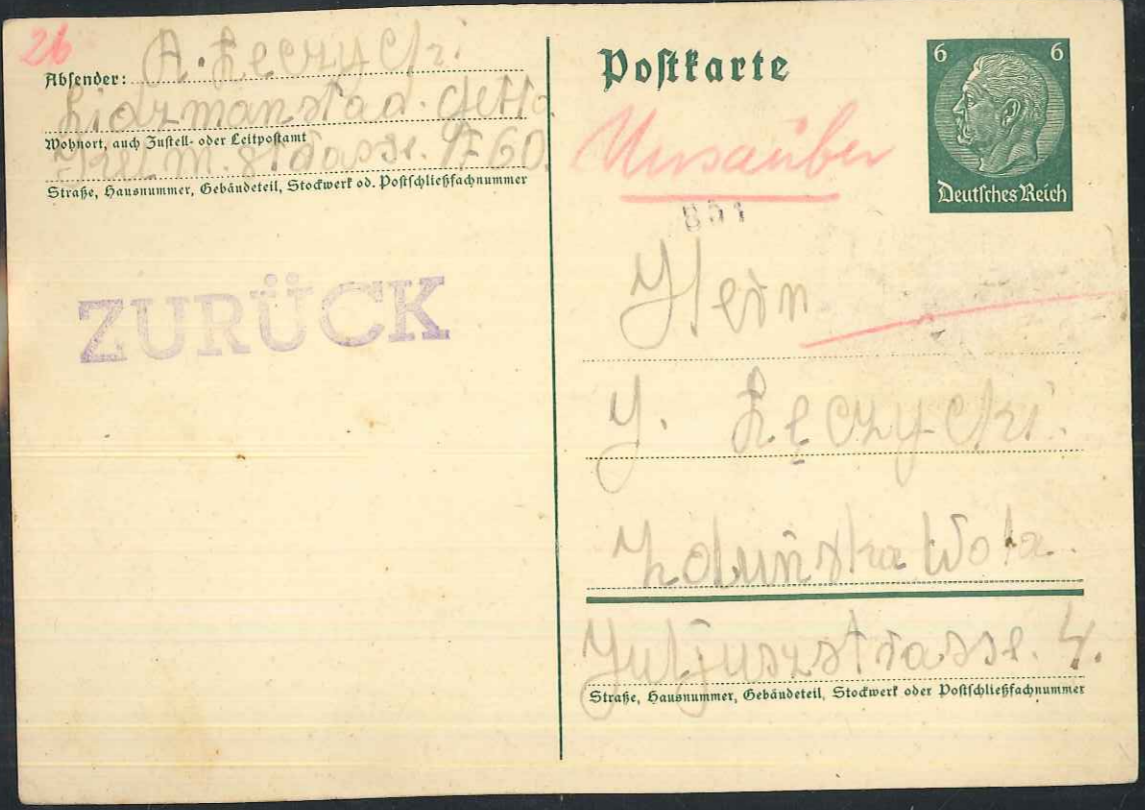 26
Absender: A. Łeczycki.
Lidzmanstad. Getto
Wohnort, auch Zustell- oder Leitpostamt
strasse. 60.
Straße, Hausnummer, Gebäudeteil, Stockwerk od. Postschließfachnummer
ZURÜCK
Postkarte
6 6
Deutsches Reich
Unsauber
851
Hern
J. Łęczycki.
Zduńska Wola.
Juljuszstrasse. 4.
Straße, Hausnummer, Gebäudeteil, Stockwerk oder Postschließfachnummer